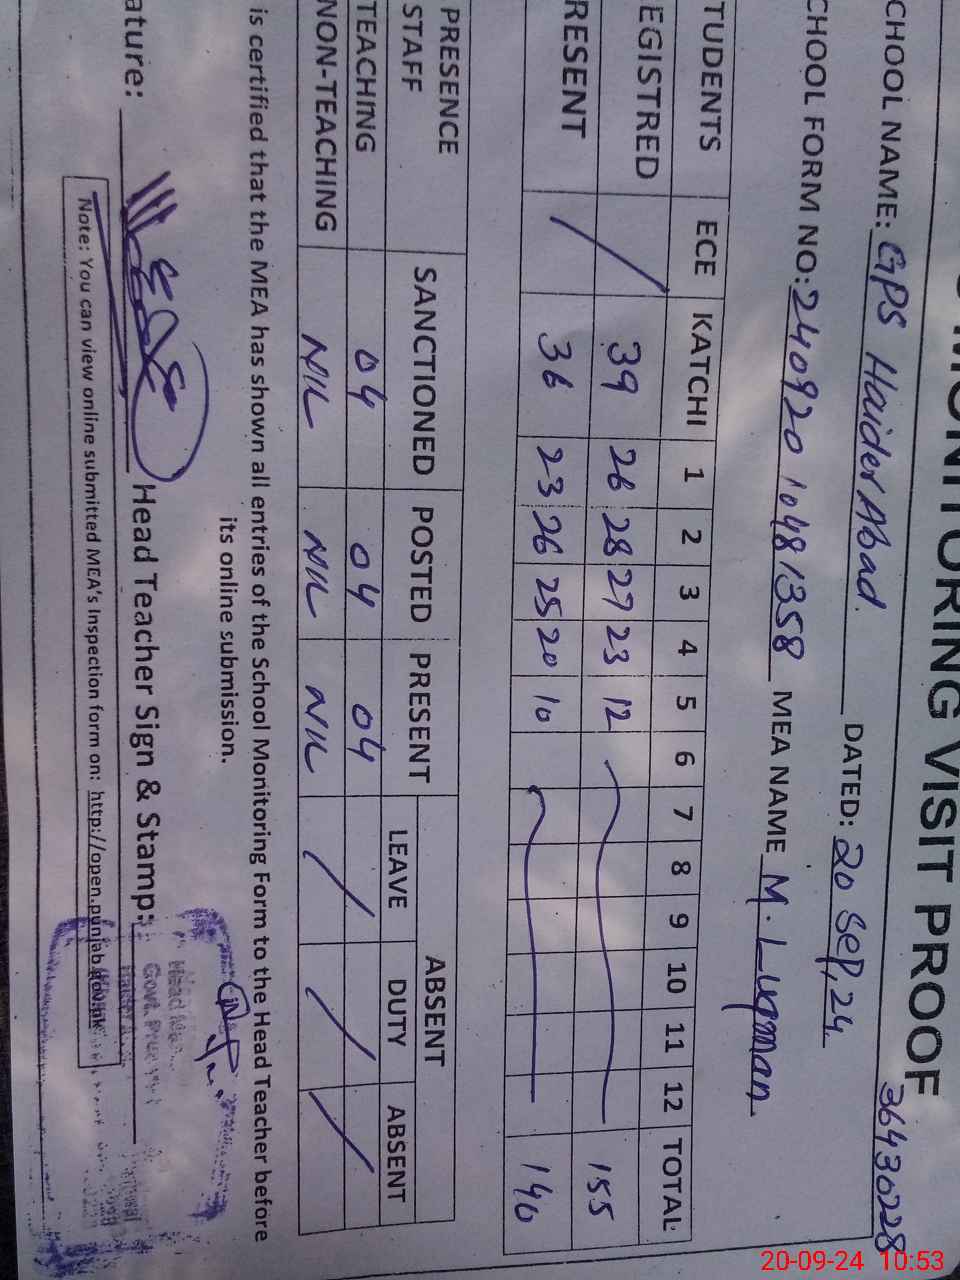 MONITORING VISIT PROOF
36430228
CHOOL NAME: GPS HaiderAbad DATED: 20 Sep, 24
CHOOL FORM NO: 240920 1048 1358 MEA NAME M. Luqman
TUDENTS ECE KATCHI 1 2 3 4 5 6 7 8 9 10 11 12 TOTAL
EGISTRED / 39 26 28 27 23 12 155
RESENT 36 23 26 25 20 10 140
PRESENCE STAFF SANCTIONED POSTED PRESENT ABSENT
LEAVE DUTY ABSENT
TEACHING 04 04 04
NON-TEACHING NIL NIL NIL / / /
is certified that the MEA has shown all entries of the School Monitoring Form to the Head Teacher before
its online submission.
ature: Head Teacher Sign & Stamp:
Note: You can view online submitted MEA's Inspection form on: http://open.punjab.gov.pk
Head
Govt.
20-09-24 10:53